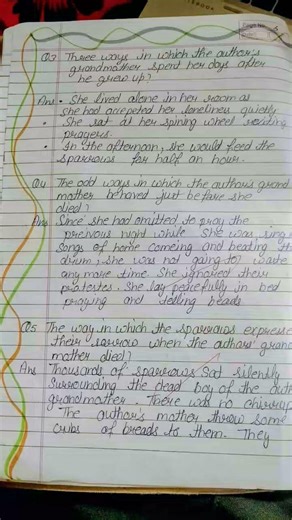 Q3 Three ways in which the author's
grandmother spent her days after
he grew up?
Ans • She lived alone in her room as
she had accepeted her loneliney quietly
• She sat at her spining wheel reciting
prayers.
• In the afternoon, she would feed the
sparrows for half an hour.
Q4 The odd ways in which the author's grand
mother behaved just before she
died?
Ans Since she had omitted to pray the
preivous night while She was sing
songs of home comeing and beating the
drum, she was not going to waste
any more time She ignored their
protestes. She lay peacefully in bed
praying and telling beads
Q5 The way in which the sparraws expresse
their sorrow when the authors' grand
mother died?
Ans Thousands of sparrows Sat silently
Surrounding the dead boy of the auth
grandmother. There was no chirrup
The author's mother threw some
crubs of breads to them. They